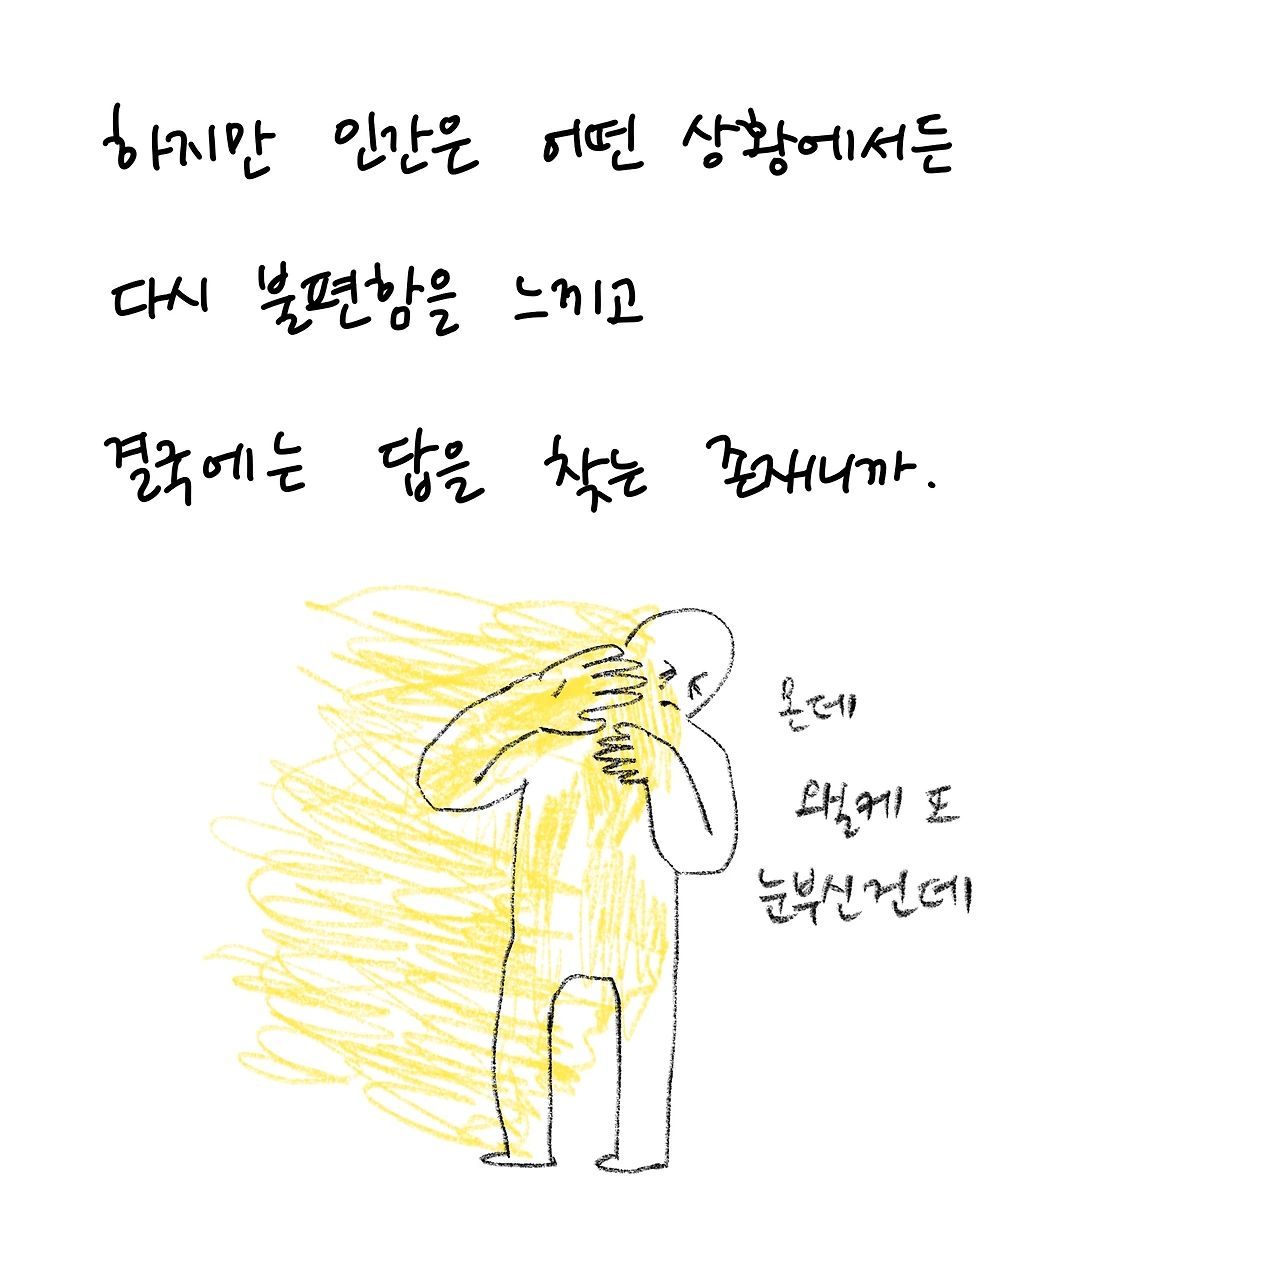 하지만 인간은 어떤 상황에서든
다시 불편함을 느끼고
결국에는 답을 찾는 존재니까.
눈부신건데